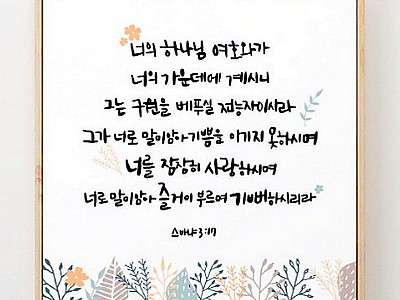 너의 하나님 여호와가
너의 가운데에 계시니
그는 구원을 베푸실 전능자이시라
그가 너로 말미암아 기쁨을 이기지 못하시며
너를 잠잠히 사랑하시며
너로 말미암아 즐거이 부르며 기뻐하시리라
스바냐 3:17